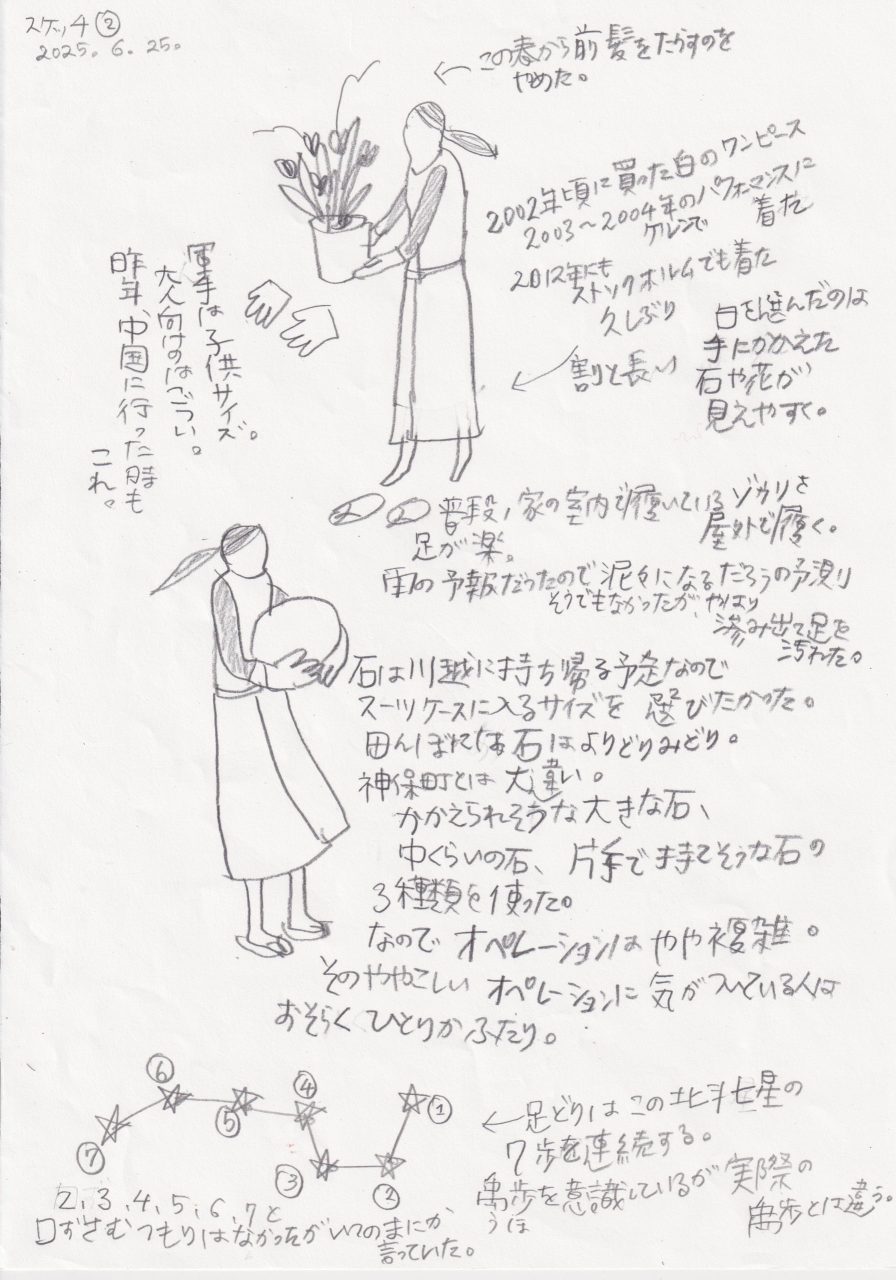 スケッチ②
2025. 6. 25.
この春から前髪をたらすのを
やめた。
2002年頃に買った白のワンピース
2003〜2004年のパフォーマンスに
ケルンで 着た
2012年にも
ストックホルムでも着た
久しぶり
割と長い
白を選んだのは
手にかかえた
石や花が
見えやすく。
軍手は子供サイズ。
大人向けのはごつい。
昨年、中国に行った時も
これ。
普段、家の室内で履いているゾウリを
屋外で履く。
足が楽。
雨の予報だったので泥々になるだろうの予測
そうでもなかったが、やはり
滲み出て足を
汚れた。
石は川越に持ち帰る予定なので
スーツケースに入るサイズを選びたかった。
田んぼには石はよりどりみどり。
神保町とは大違い。
かかえられそうな大きな石、
中くらいの石、片手で持てそうな石の
3種類を使った。
なので オペレーションはやや複雑。
そのややこしい オペレーションに気がついている人は
おそらくひとりかふたり。
①
②
③
④
⑤
⑥
⑦
←足どりはこの北斗七星の
7歩を連続する。
禹歩を意識しているが実際の
うほ
禹歩とは違う。
2、3、4、5、6、7と
口ずさむつもりはなかったがいつのまにか
言っていた。